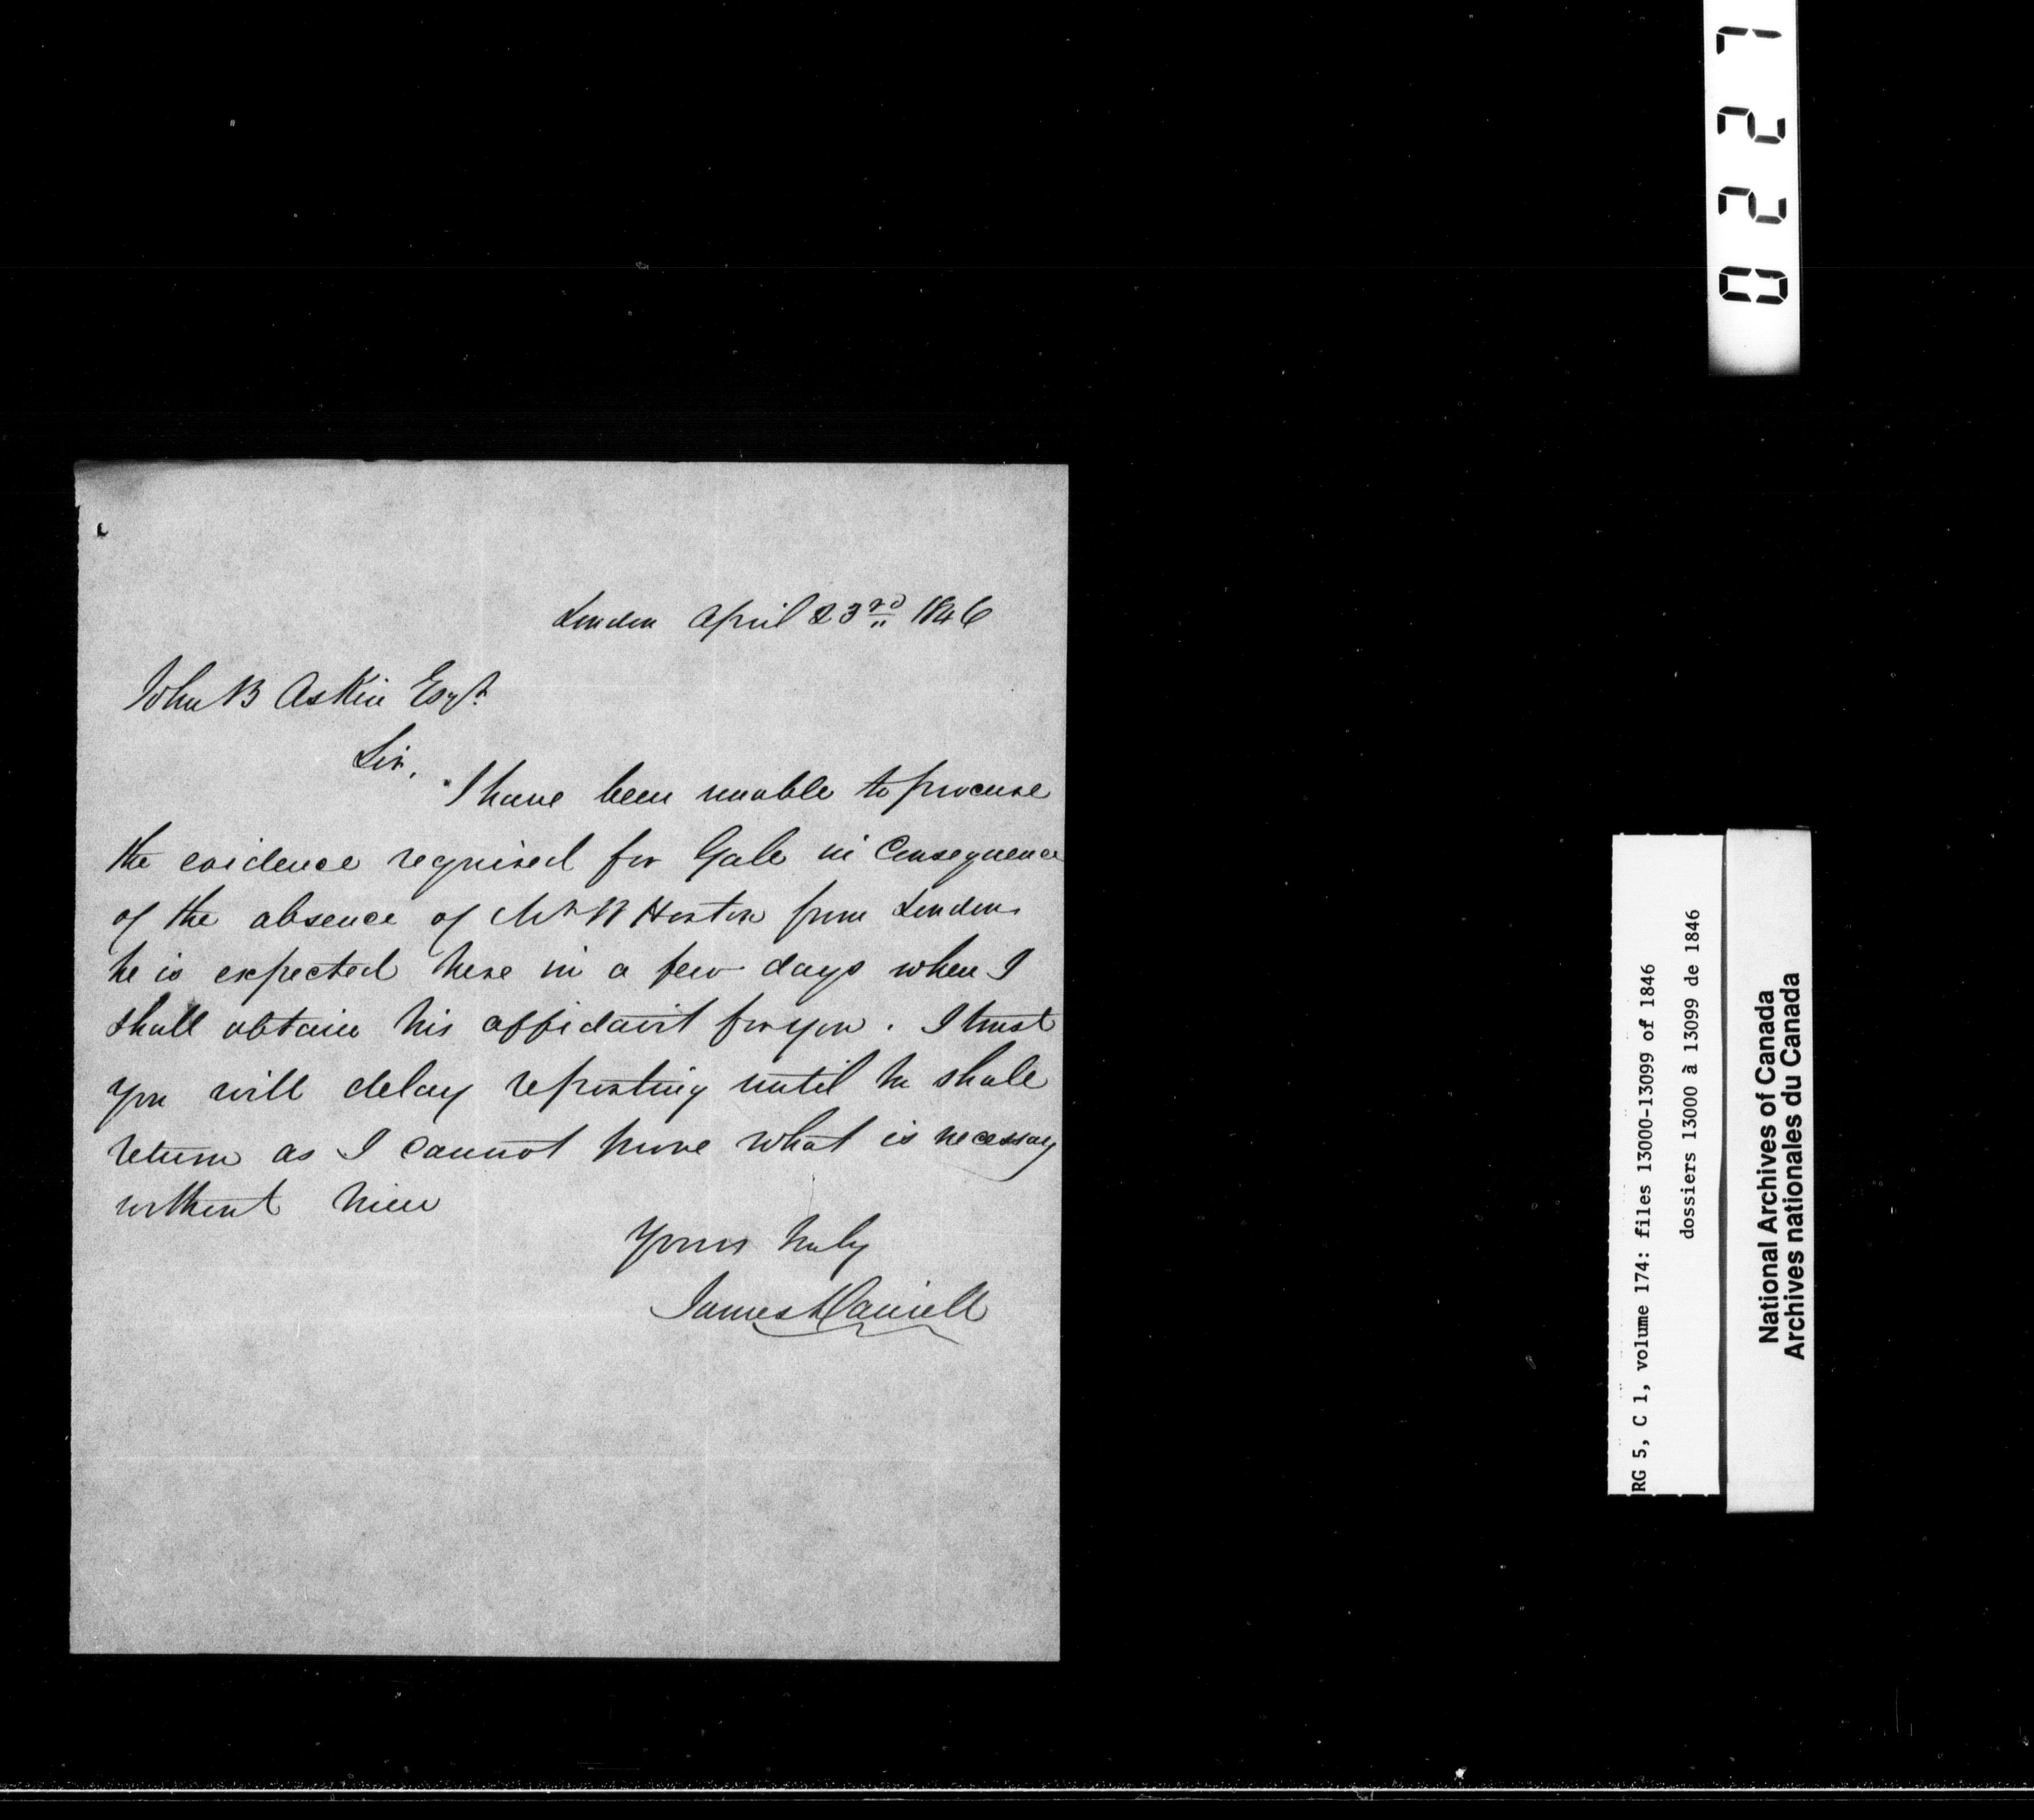 London April 23rd 1846
John B Askin Esqr.
Sir,
I have been unable to procure
the evidence required for Gale in Consequence
of the absence of Mr W Horton from London
he is expected here in a few days when I
shall obtain his affidavit for you. I trust
you will delay reporting until he shall
return as I cannot prove what is necessary
without him
Yours truly
James Daniell
0227
RG 5, C 1, volume 174: files 13000-13099 of 1846
dossiers 13000 à 13099 de 1846
National Archives of Canada
Archives nationales du Canada